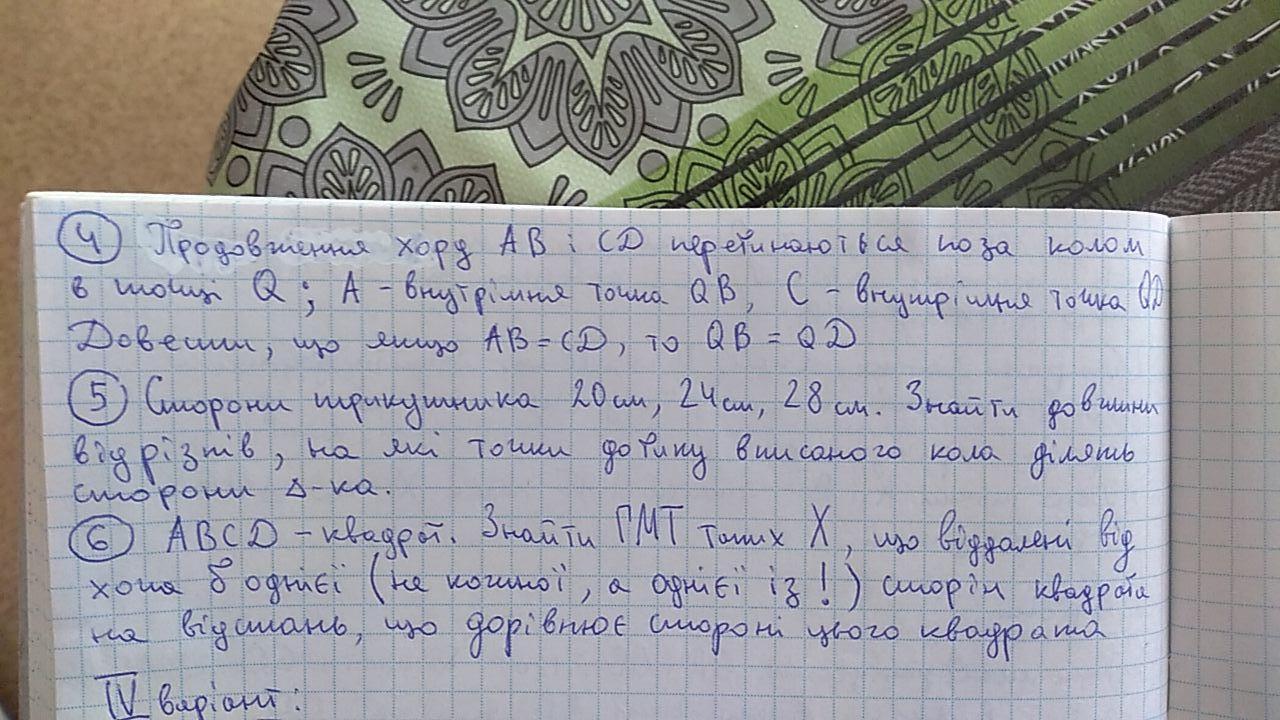 4 Продовження хорд AB і CD перетинаються поза колом
в точці Q; A - внутрішня точка QB, C - внутрішня точка QD
Довести, що якщо AB = CD, то QB = QD
5 Сторони трикутника 20см, 24см, 28см. Знайти довжини
відрізків, на які точки дотику вписаного кола ділять
сторони Δ-ка.
6 ABCD - квадрат. Знайти ГМТ таких X, що віддалені від
хоча б однієї (не кожної, а однієї із!) сторін квадрата
на відстань, що дорівнює стороні цього квадрата
IV варіант: